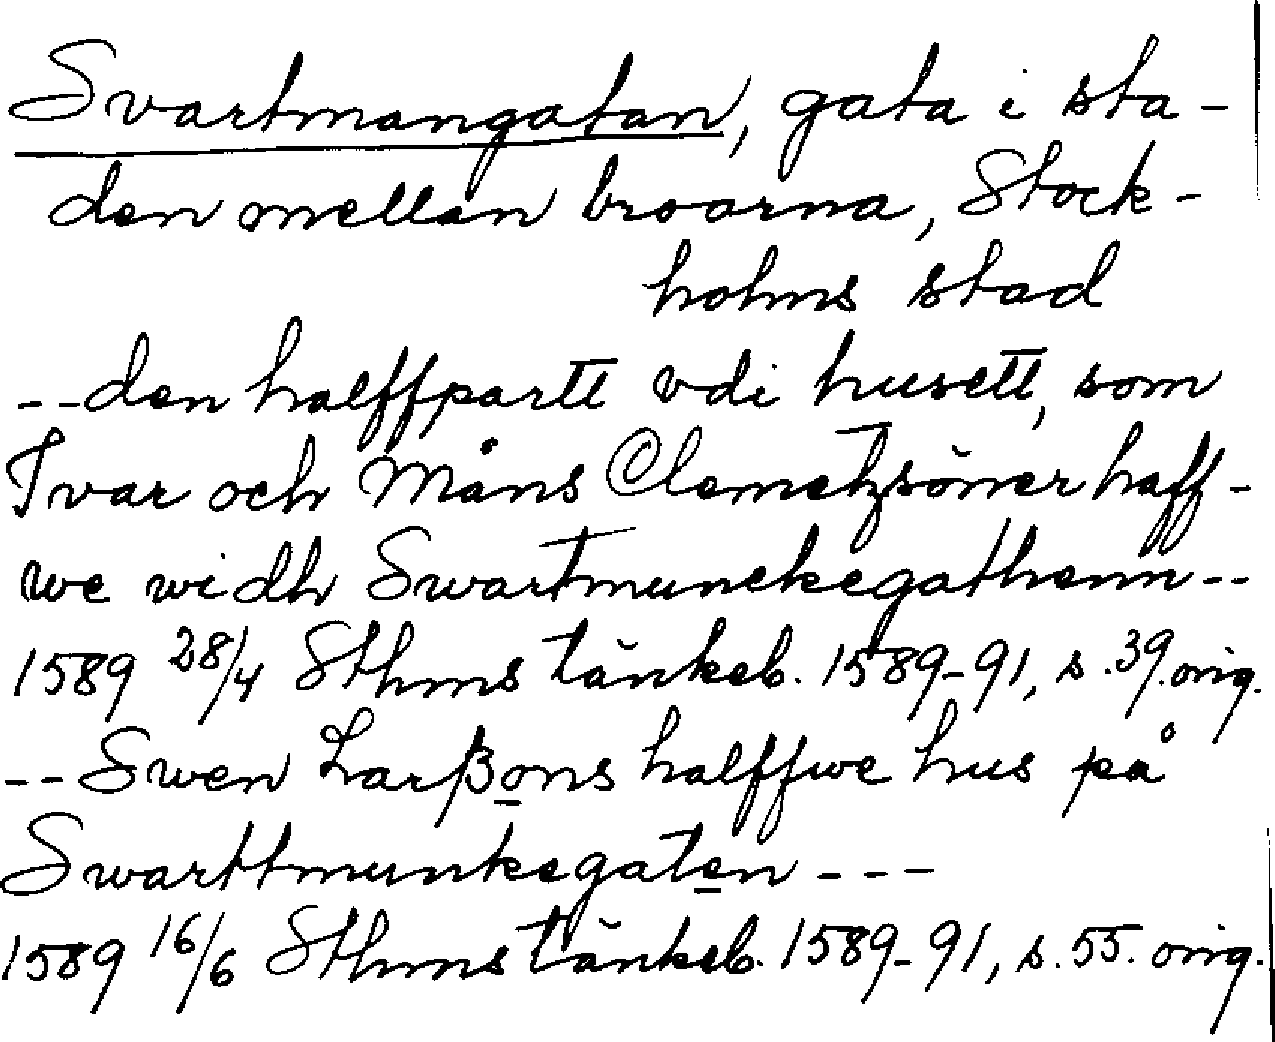 Svartmangatan, gata i sta-
den mellan broarna, Stock-
holms stad
--den halffpartt vdi husett, som
Ivar och Måns Clemetzsöner haff-
we widh Swartmunckegathenn--
1589 28/4 Sthms tänkeb. 1589-91, s. 39. orig.
--Swen Larßons halffwe hus på
Swarttmunkegaten---
1589 16/6 Sthms tänkeb. 1589-91, s. 55. orig.